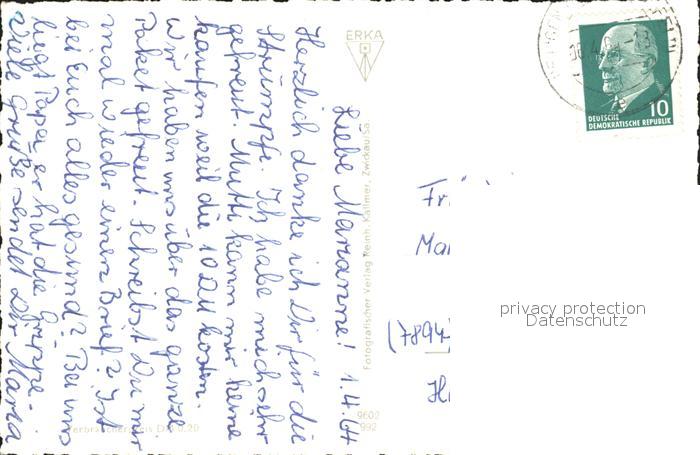 Liebe Marianne! 1.4.64
Herzlich danke ich Dir für die
Strümpfe. Ich habe mich sehr
gefreut. Mutti kann mir keine
kaufen weil die 10 DM kosten.
Wir haben uns über das ganze
Paket gefreut. Schreibst Du mir
mal wieder einen Brief? Ist
bei Euch alles gesund? Bei uns
liegt Papa, er hat die Grippe.
Viele Grüße sendet Dir Maria
ERKA
Fotografischer Verlag Reinh. Kallmer, Zwickau/Sa.
9602
992
Verbraucherpreis DM 0,20
10
DEUTSCHE
DEMOKRATISCHE REPUBLIK
Fr
Ma
(7894)
H
privacy protection
Datenschutz